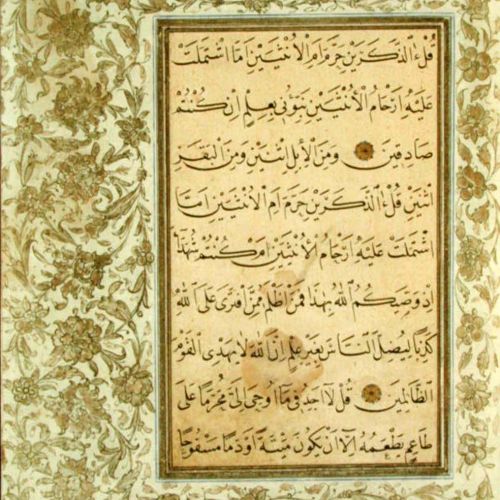 قُلْ ءَالذَّكَرَيْنِ حَرَّمَ اَمِ الْاُنْثَيَيْنِ اَمَّا اشْتَمَلَتْ
عَلَيْهِ اَرْحَامُ الْاُنْثَيَيْنِ نَبِّؤُنِى بِعِلْمٍ اِنْ كُنْتُمْ
صَادِقِينَ وَمِنَ الْاِبِلِ اثْنَيْنِ وَمِنَ الْبَقَرِ
اثْنَيْنِ قُلْ ءَالذَّكَرَيْنِ حَرَّمَ اَمِ الْاُنْثَيَيْنِ اَمَّا
اشْتَمَلَتْ عَلَيْهِ اَرْحَامُ الْاُنْثَيَيْنِ اَمْ كُنْتُمْ شُهَدَآءَ
اِذْ وَصّٰيكُمُ اللّٰهُ بِهٰذَا فَمَنْ اَظْلَمُ مِمَّنِ افْتَرٰى عَلَى اللّٰهِ
كَذِبًا لِيُضِلَّ النَّاسَ بِغَيْرِ عِلْمٍ اِنَّ اللّٰهَ لَا يَهْدِى الْقَوْمَ
الظَّالِمِينَ قُلْ لَا اَجِدُ فِى مَا اُوحِىَ اِلَىَّ مُحَرَّمًا عَلٰى
طَاعِمٍ يَطْعَمُهُ اِلَّا اَنْ يَكُونَ مَيْتَةً اَوْ دَمًا مَسْفُوحًا